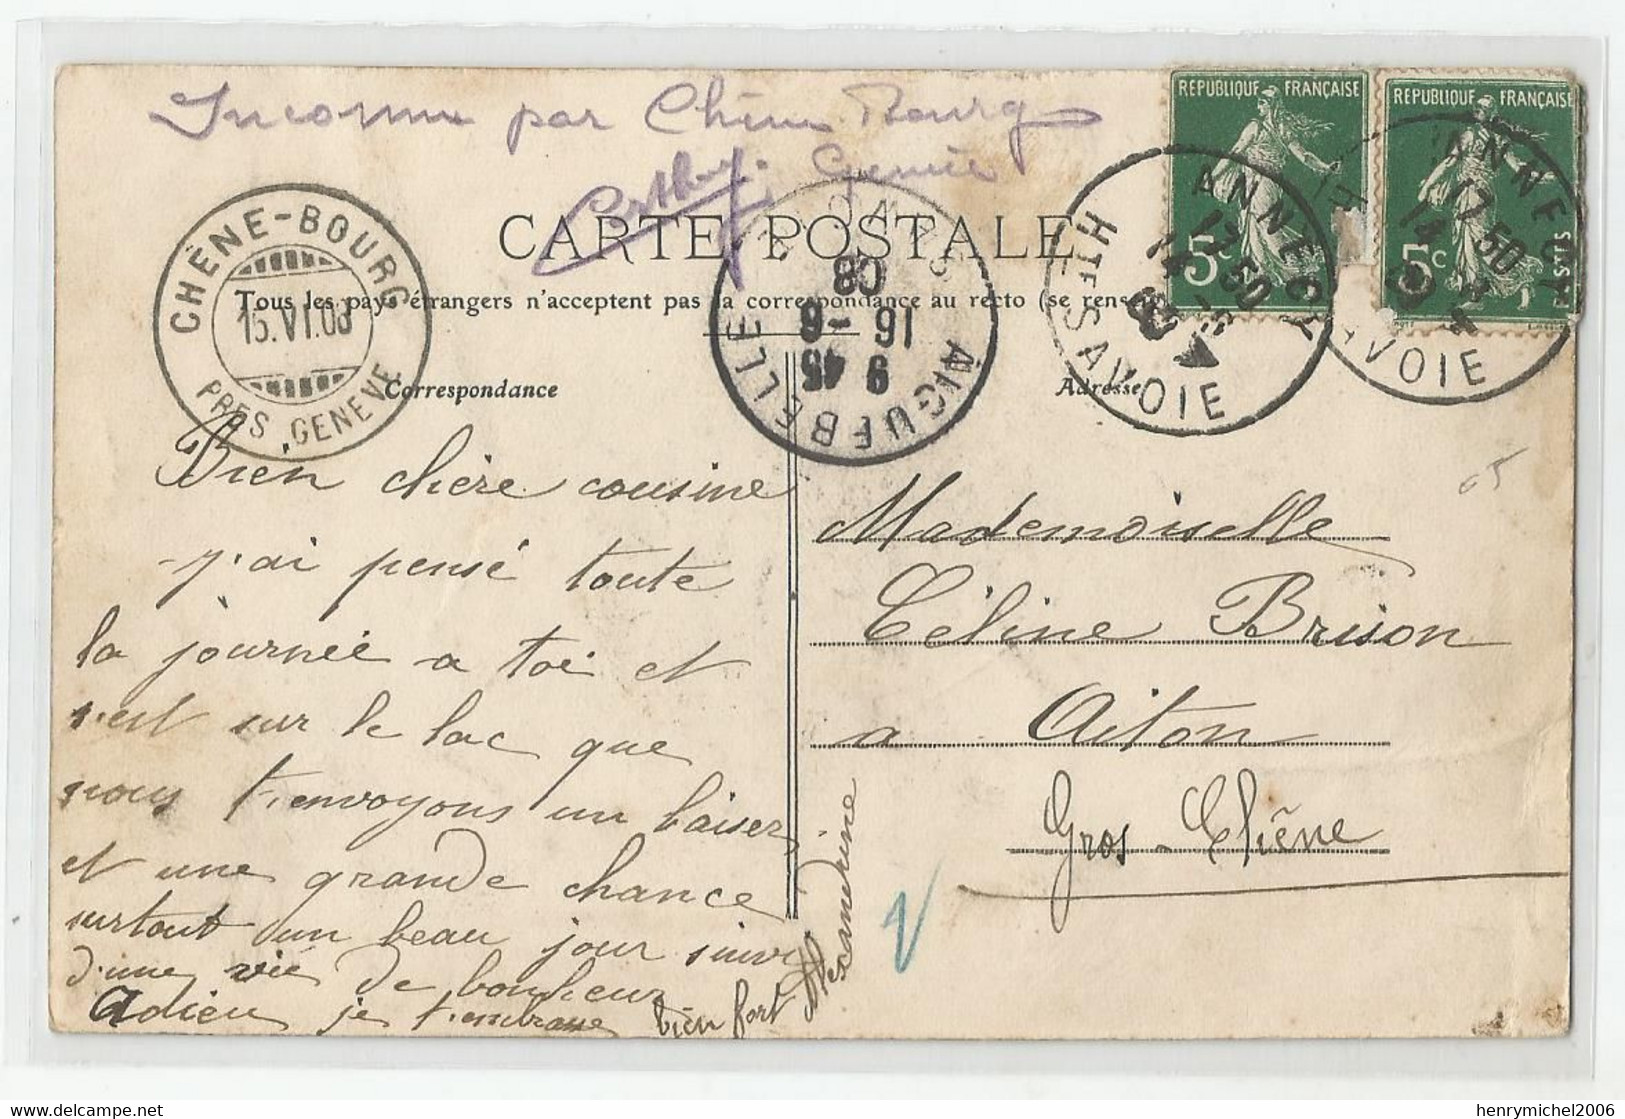 Inconnu par Chêne Bourg
Genève
CARTE POSTALE
Tous les pays étrangers n'acceptent pas la correspondance au recto (se rensei
Correspondance
Adresse
CHÊNE-BOURG
15.VI.08
PRÈS GENÈVE
AIGUEBELLE
9 45
16 -6
08
RÉPUBLIQUE FRANÇAISE
5c
ANNECY
17 50
14
HTE SAVOIE
RÉPUBLIQUE FRANÇAISE
5c
ANNECY
17 50
14
SAVOIE
05
Bien chère cousine
j'ai pensé toute
la journée a toi et
s'est sur le lac que
nous t'envoyons un baiser
et une grande chance
surtout un beau jour suivi
d'une vie de bonheur
adieu je t'embrasse bien fort
Alexandrine
Mademoiselle
Céline Brison
a Aiton
Gros-Chêne
henrymichel2006